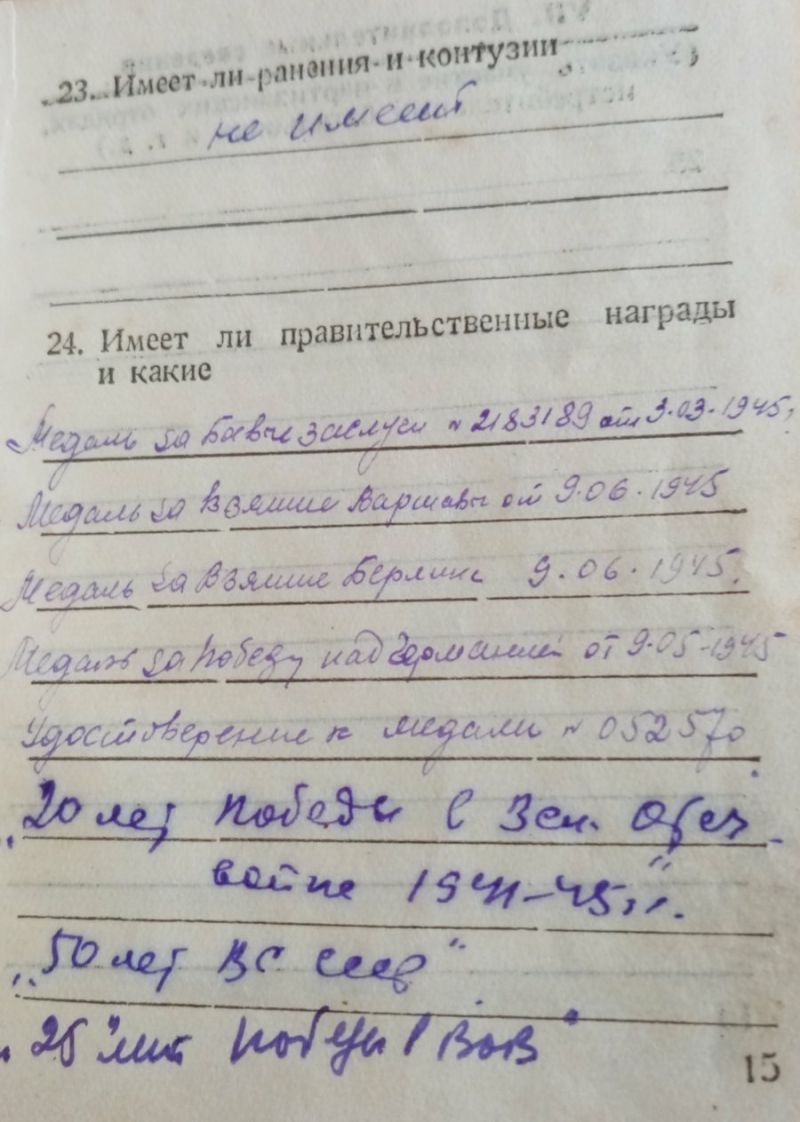 23. Имеет ли ранения и контузии
не имеет
24. Имеет ли правительственные награды
и какие
Медаль за Боевые заслуги № 2183189 от 3.03.1945г
Медаль за Взятие Варшавы от 9.06.1945
Медаль за Взятие Берлина 9.06.1945.
Медаль за победу над Германией от 9.05-1945
Удостоверение к медали № 052570
„20 лет победы в Вел. Отеч.
войне 1941-45 г.г."
„50 лет ВС СССР"
„25 лет Победы в ВОВ"
15